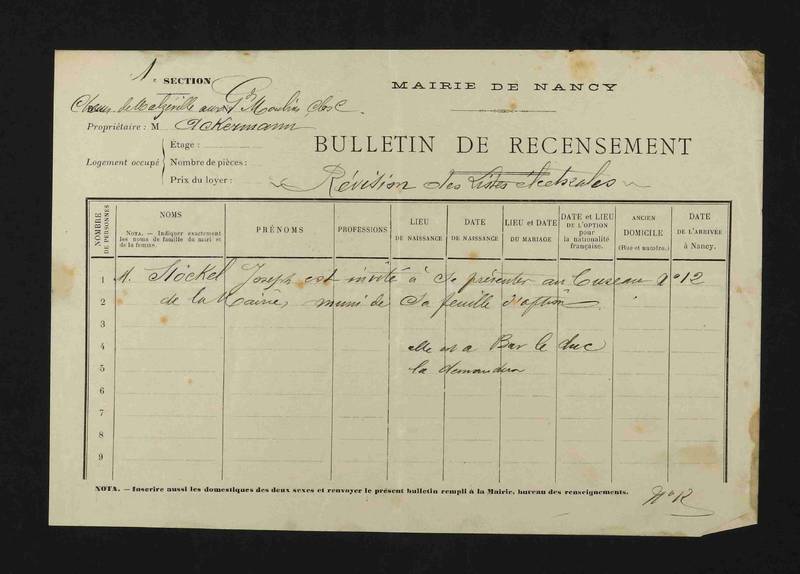 1e SECTION
MAIRIE DE NANCY
de Malzéville aux Gds Moulins
Propriétaire : M Ackermann
BULLETIN DE RECENSEMENT
Logement occupé
Etage :
Nombre de pièces :
Prix du loyer :
Révision des Listes électorales
NOMBRE DE PERSONNES
NOMS
NOTA. — Indiquer exactement les noms de famille du mari et de la femme.
PRÉNOMS
PROFESSIONS
LIEU DE NAISSANCE
DATE DE NAISSANCE
LIEU et DATE DU MARIAGE
DATE et LIEU DE L'OPTION pour la nationalité française.
ANCIEN DOMICILE (Rue et numéro.)
DATE DE L'ARRIVÉE à Nancy.
1 M. Stöckel Joseph est invité à se présenter au bureau No 12
2 de la Mairie, muni de sa feuille d'option.
3
4 elle est a Bar le duc
5 la demandera
6
7
8
9
NOTA. — Inscrire aussi les domestiques des deux sexes et renvoyer le présent bulletin rempli à la Mairie, bureau des renseignements.